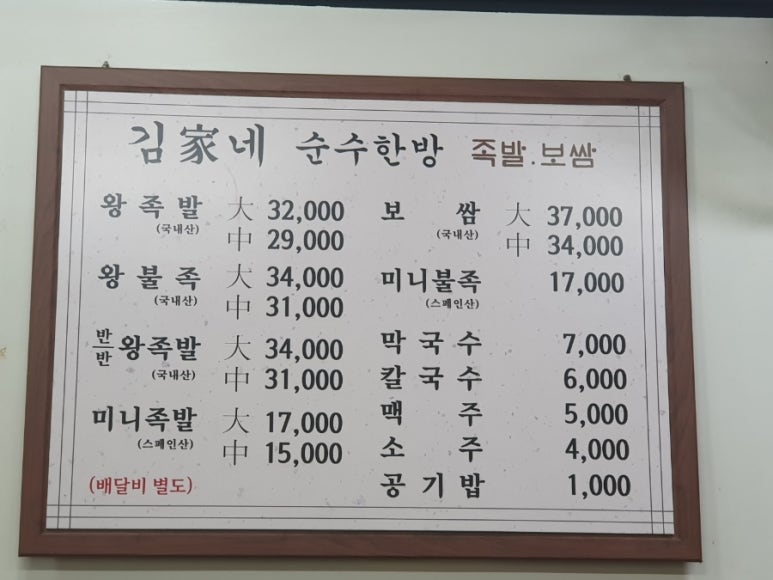 김家네 순수한방 족발.보쌈
왕족발 大 32,000
(국내산) 中 29,000
왕불족 大 34,000
(국내산) 中 31,000
반반 왕족발 大 34,000
(국내산) 中 31,000
미니족발 大 17,000
(스페인산) 中 15,000
(배달비 별도)
보쌈 大 37,000
(국내산) 中 34,000
미니불족 17,000
(스페인산)
막국수 7,000
칼국수 6,000
맥주 5,000
소주 4,000
공기밥 1,000